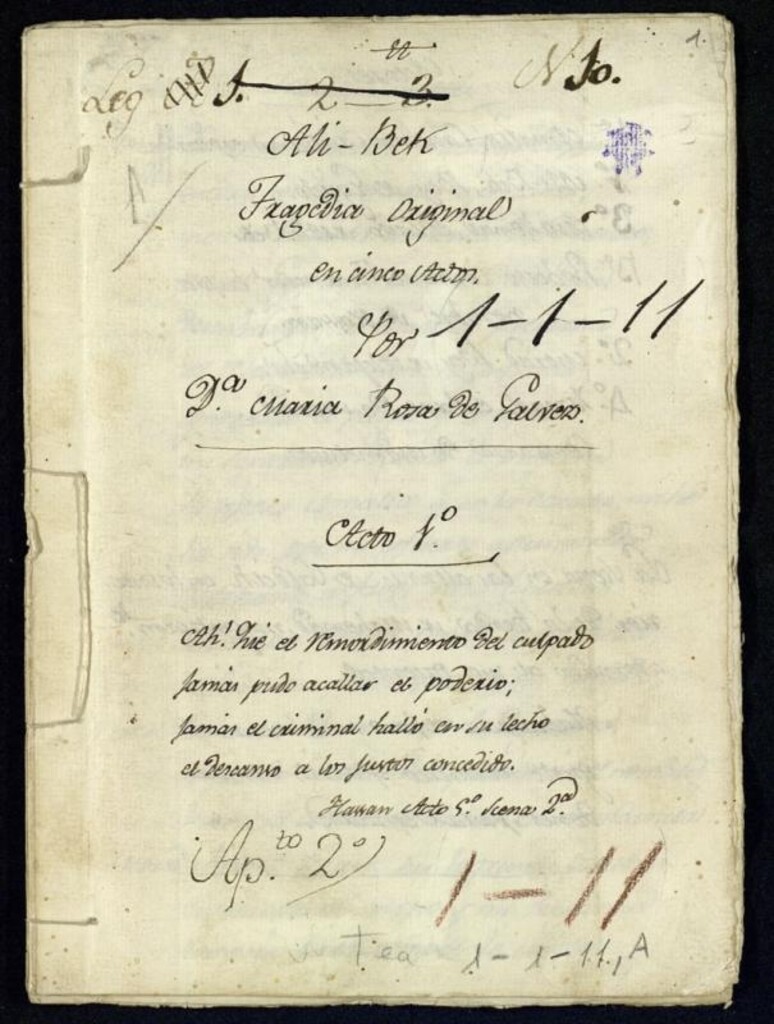 1.
Leg 1. 2 — 3. N 10.
Ali-Bek
Tragedia Original
en cinco Actos.
Por 1-1-11
D.ª Maria Rosa de Galvez.
Acto 1º
Ah! que el remordimiento del culpado
Jamas pudo acallar el poderio;
Jamas el criminal halló en su lecho
el descanso a los justos concedido.
Hassan Acto 5º Scena 2ª
Ap.to 2º
1-11
Tea 1-1-11, A